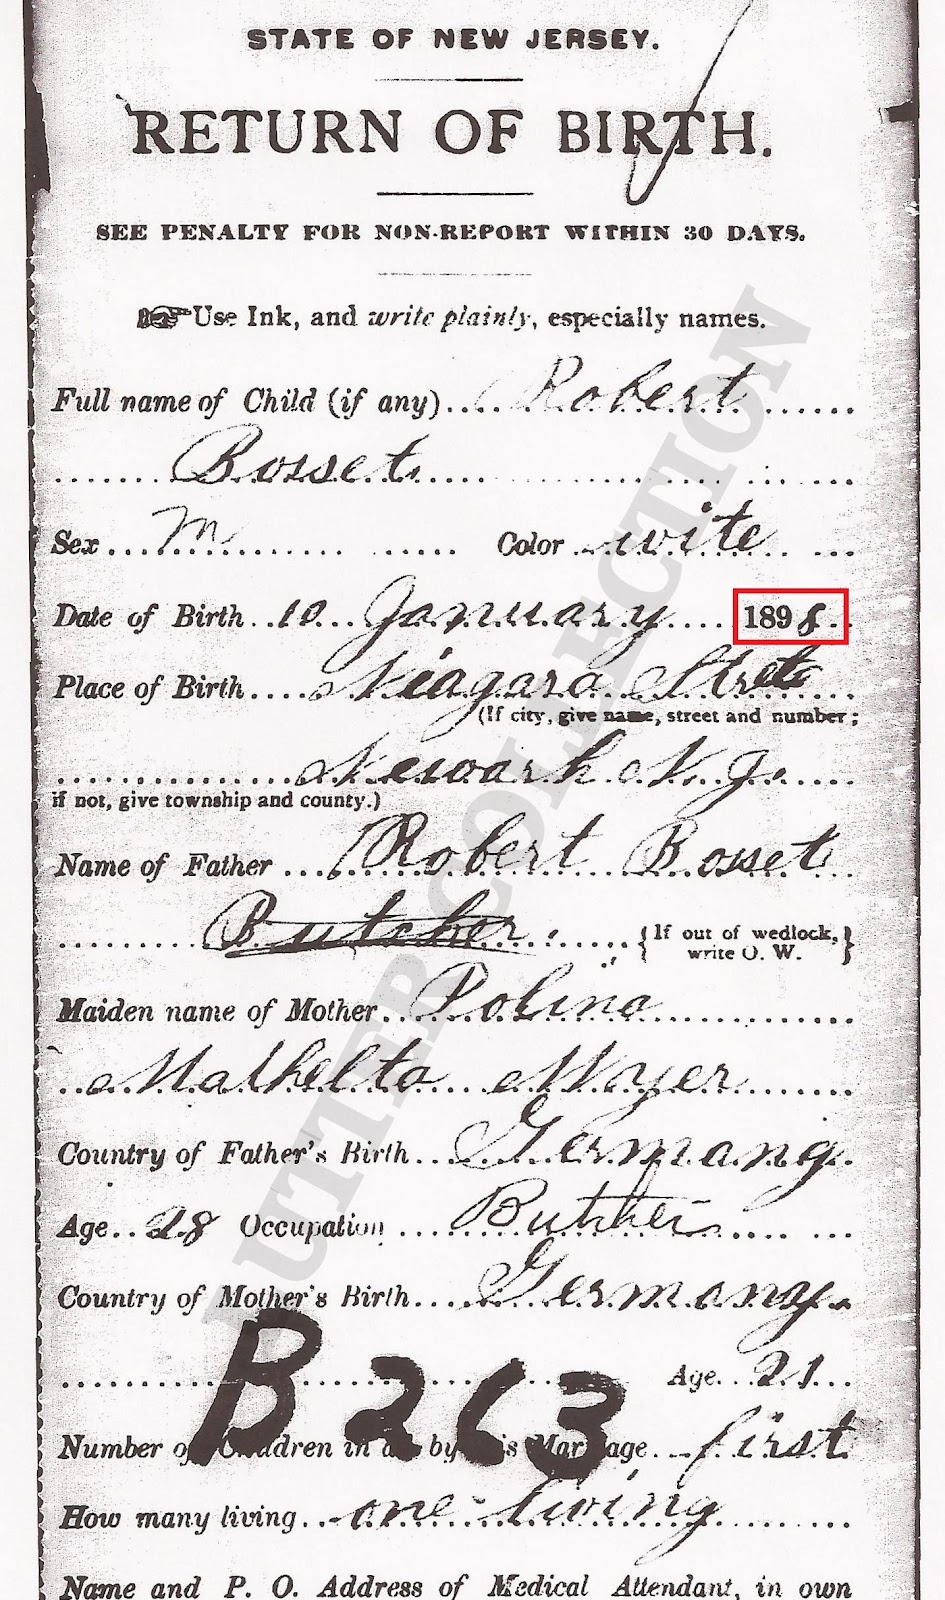 STATE OF NEW JERSEY.
RETURN OF BIRTH.
SEE PENALTY FOR NON-REPORT WITHIN 30 DAYS.
Use Ink, and write plainly, especially names.
Full name of Child (if any).... Robert
Bosset
Sex M Color wite
Date of Birth 10 January 1898
Place of Birth Niagara Strete
(If city, give name, street and number;
Newark N. J.
if not, give township and county.)
Name of Father Robert Bosset
Butcher {If out of wedlock, write O. W.}
Maiden name of Mother Polina
Mathelta Mayer
Country of Father's Birth Germany
Age 28 Occupation Butcher
Country of Mother's Birth Germany
Age 21
B 263
Number of Children in all by this Marriage first
How many living one living
Name and P. O. Address of Medical Attendant, in own
UTTR COLLECTION